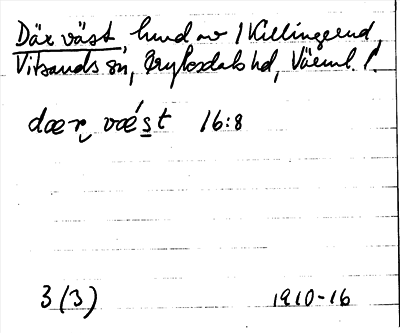 Där väst, hmd av 1 Killingerud,
Vitsands sn, Fryksdals hd, Värml. l.
dær vǽst 16:8
3(3) 1910-16